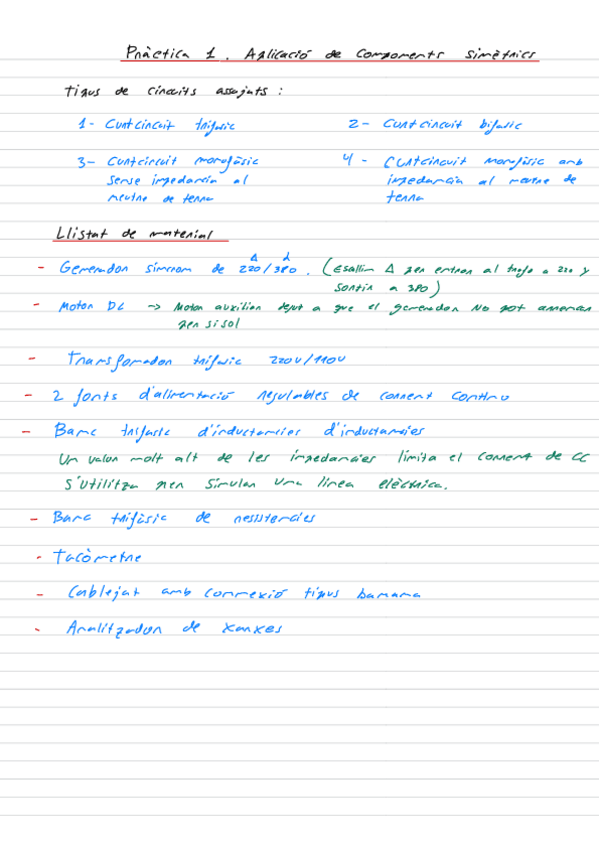 Pràctica 1. Aplicació de Components Simètrics
Tipus de circuits assajats:
1- Curtcircuit trifasic
2- Curtcircuit bifasic
3- Curtcircuit monofàsic
sense impedancia al
neutre de terra
4- Curtcircuit monofàsic amb
impedancia al neutre de
terra
Llistat de material
Δ
- Generador sincron de 220/380. (Escollim Δ per entrar al trafo a 220 y
sortir a 380)
- Motor DC -> Motor auxiliar degut a que el generador No pot arrencar
per si sol
- Transformador trifasic 220V/110V
- 2 fonts d'alimentació regulables de corrent continu
- Banc trifasic d'inductancies d'inductancies
Un valor molt alt de les impedancies limita el corrent de CC
S'utilitza per simular una linea elèctrica.
- Banc trifàsic de resistencies
- Tacòmetre
- Cablejat amb connexió tipus banana
- Analitzador de xarxes